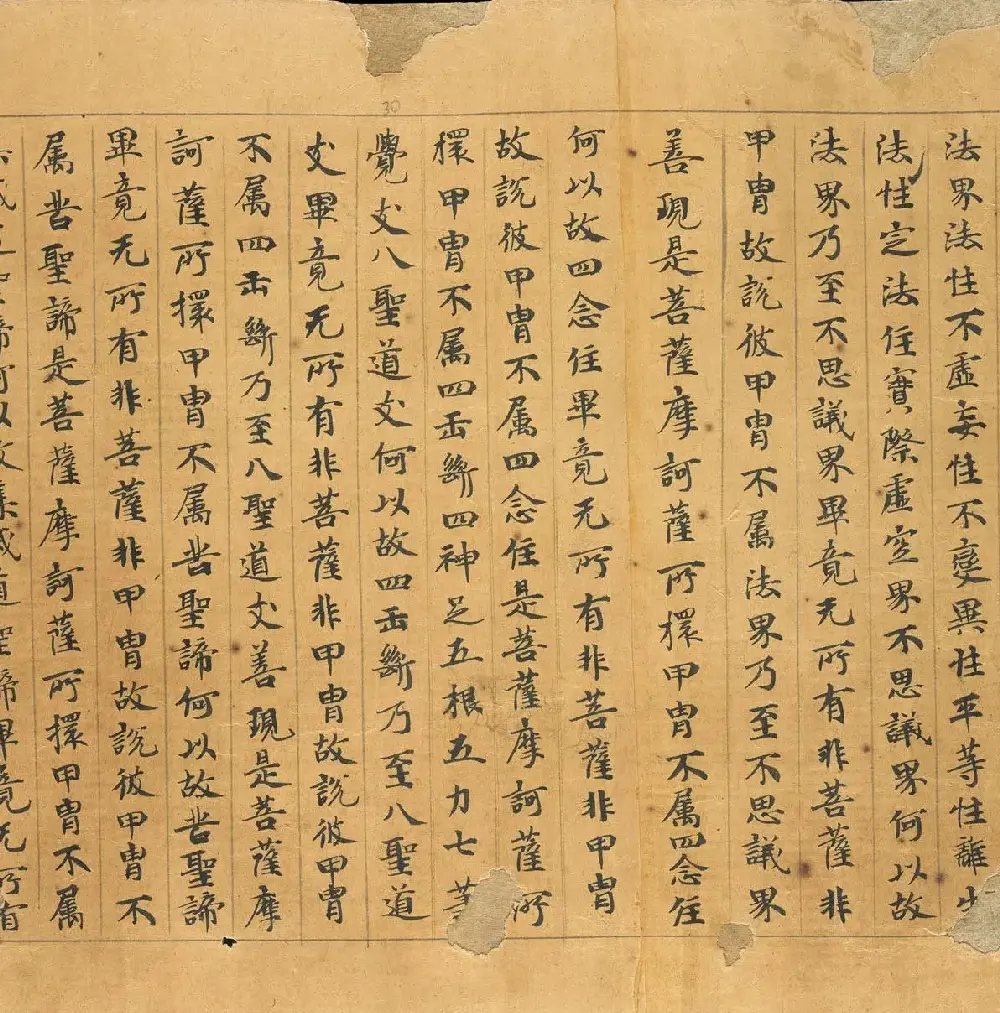 30
法界法性不虛妄性不變異性平等性離
法性定法住實際虛空界不思議界何以故
法界乃至不思議界畢竟无所有非菩薩非
甲冑故說彼甲冑不属法界乃至不思議界
善現是菩薩摩訶薩所擐甲冑不属四念住
何以故四念住畢竟无所有非菩薩非甲冑
故說彼甲冑不属四念住是菩薩摩訶薩所
擐甲冑不属四正斷四神足五根五力七等
覺支八聖道支何以故四正斷乃至八聖道
支畢竟无所有非菩薩非甲冑故說彼甲冑
不属四正斷乃至八聖道支善現是菩薩摩
訶薩所擐甲冑不属苦聖諦何以故苦聖諦
畢竟无所有非菩薩非甲冑故說彼甲冑不
属苦聖諦是菩薩摩訶薩所擐甲冑不属
滅道聖諦何以故集滅道聖諦畢竟无所有